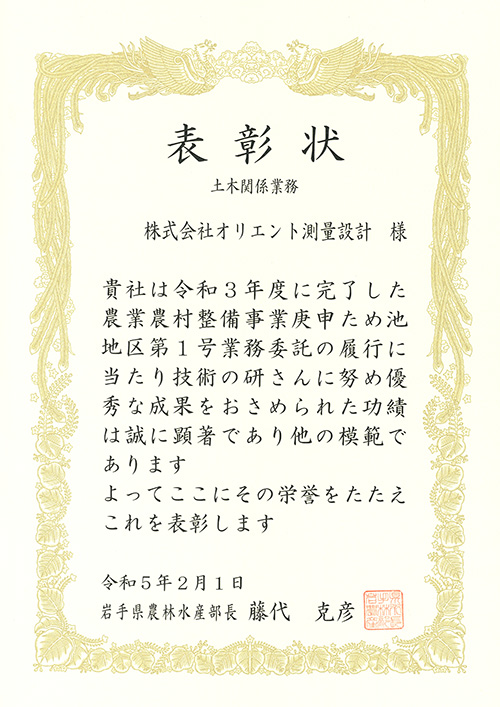 表彰状
土木関係業務
株式会社オリエント測量設計 様
貴社は令和3年度に完了した
農業農村整備事業庚申ため池
地区第1号業務委託の履行に
当たり技術の研さんに努め優
秀な成果をおさめられた功績
は誠に顕著であり他の模範で
あります
よってここにその栄誉をたたえ
これを表彰します
令和5年2月1日
岩手県農林水産部長 藤代 克彦